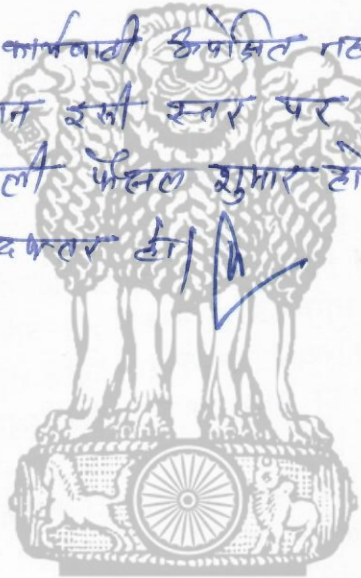 कार्यवाही अपेक्षित नह
न इसी स्तर पर
ली फैसल शुमार हो
दफ्तर हो।